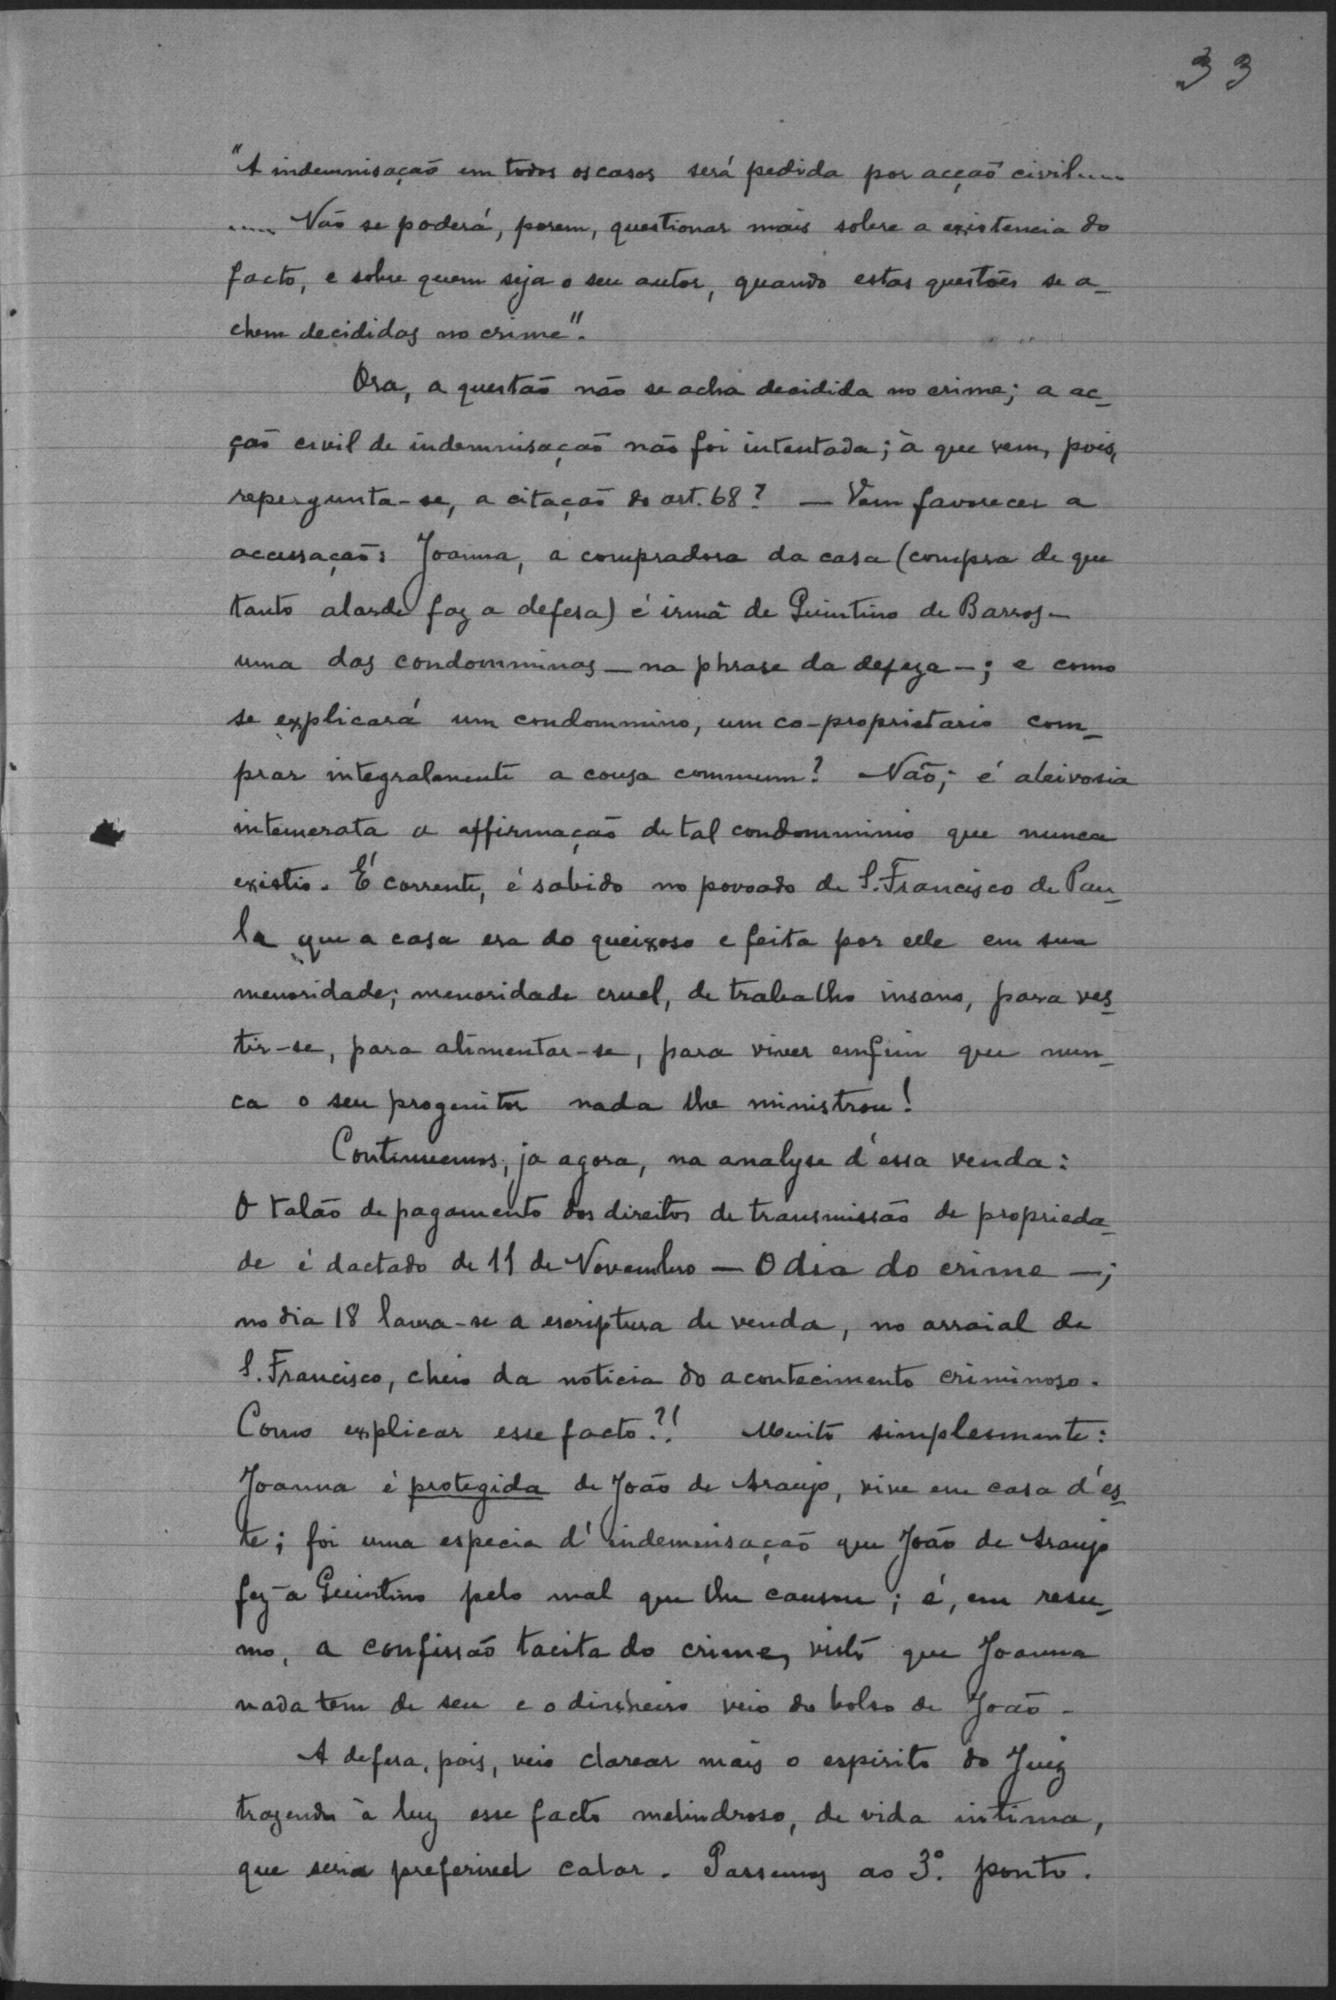 33
"A indemnisação em todos os casos será pedida por acção civil....
.... Não se poderá, porem, questionar mais sobre a existencia do
facto, e sobre quem seja o seu autor, quando estas questões se a-
chem decididas no crime".
Ora, a questão não se acha decidida no crime; a ac-
ção civil de indemnisação não foi intentada; à que vem, pois,
repergunta-se, a citação do art. 68? — Vem favorecer a
accusação: Joanna, a compradora da casa (compra de que
tanto alarde faz a defesa) é irmã de Quintino de Barros —
uma das condomminas — na phrase da defeza —; e como
se explicará um condommino, um co-proprietario com-
prar integralmente a cousa commum? Não; é aleivosia
intemerata a affirmação de tal condomminio que nunca
existio. É corrente, é sabido no povoado de S. Francisco de Pau-
la que a casa era do queixoso e feita por elle em sua
menoridade; menoridade cruel, de trabalho insano, para ves-
tir-se, para alimentar-se, para viver emfim que nun-
ca o seu progenitor nada lhe ministrou!
Continuemos, ja agora, na analyse d'essa venda:
O talão de pagamento dos direitos de transmissão de proprieda-
de é dactado de 11 de Novembro — O dia do crime —;
no dia 18 lavra-se a escriptura de venda, no arraial de
S. Francisco, cheio da noticia do acontecimento criminoso.
Como explicar esse facto?! Muito simplesmente:
Joanna é protegida de João de Araujo, vive em casa d'es-
te; foi uma especia d'indemnisação que João de Araujo
fez a Quintino pelo mal que lhe causou; é, em resu-
mo, a confissão tacita do crime, visto que Joanna
nada tem de seu e o dinheiro veio do bolso de João.
A defesa, pois, veio clarear mais o espirito do Juiz
trazendo à luz esse facto melindroso, de vida intima,
que seria preferivel calar. Passemos ao 3º. ponto.